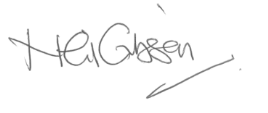 Neil Gibson